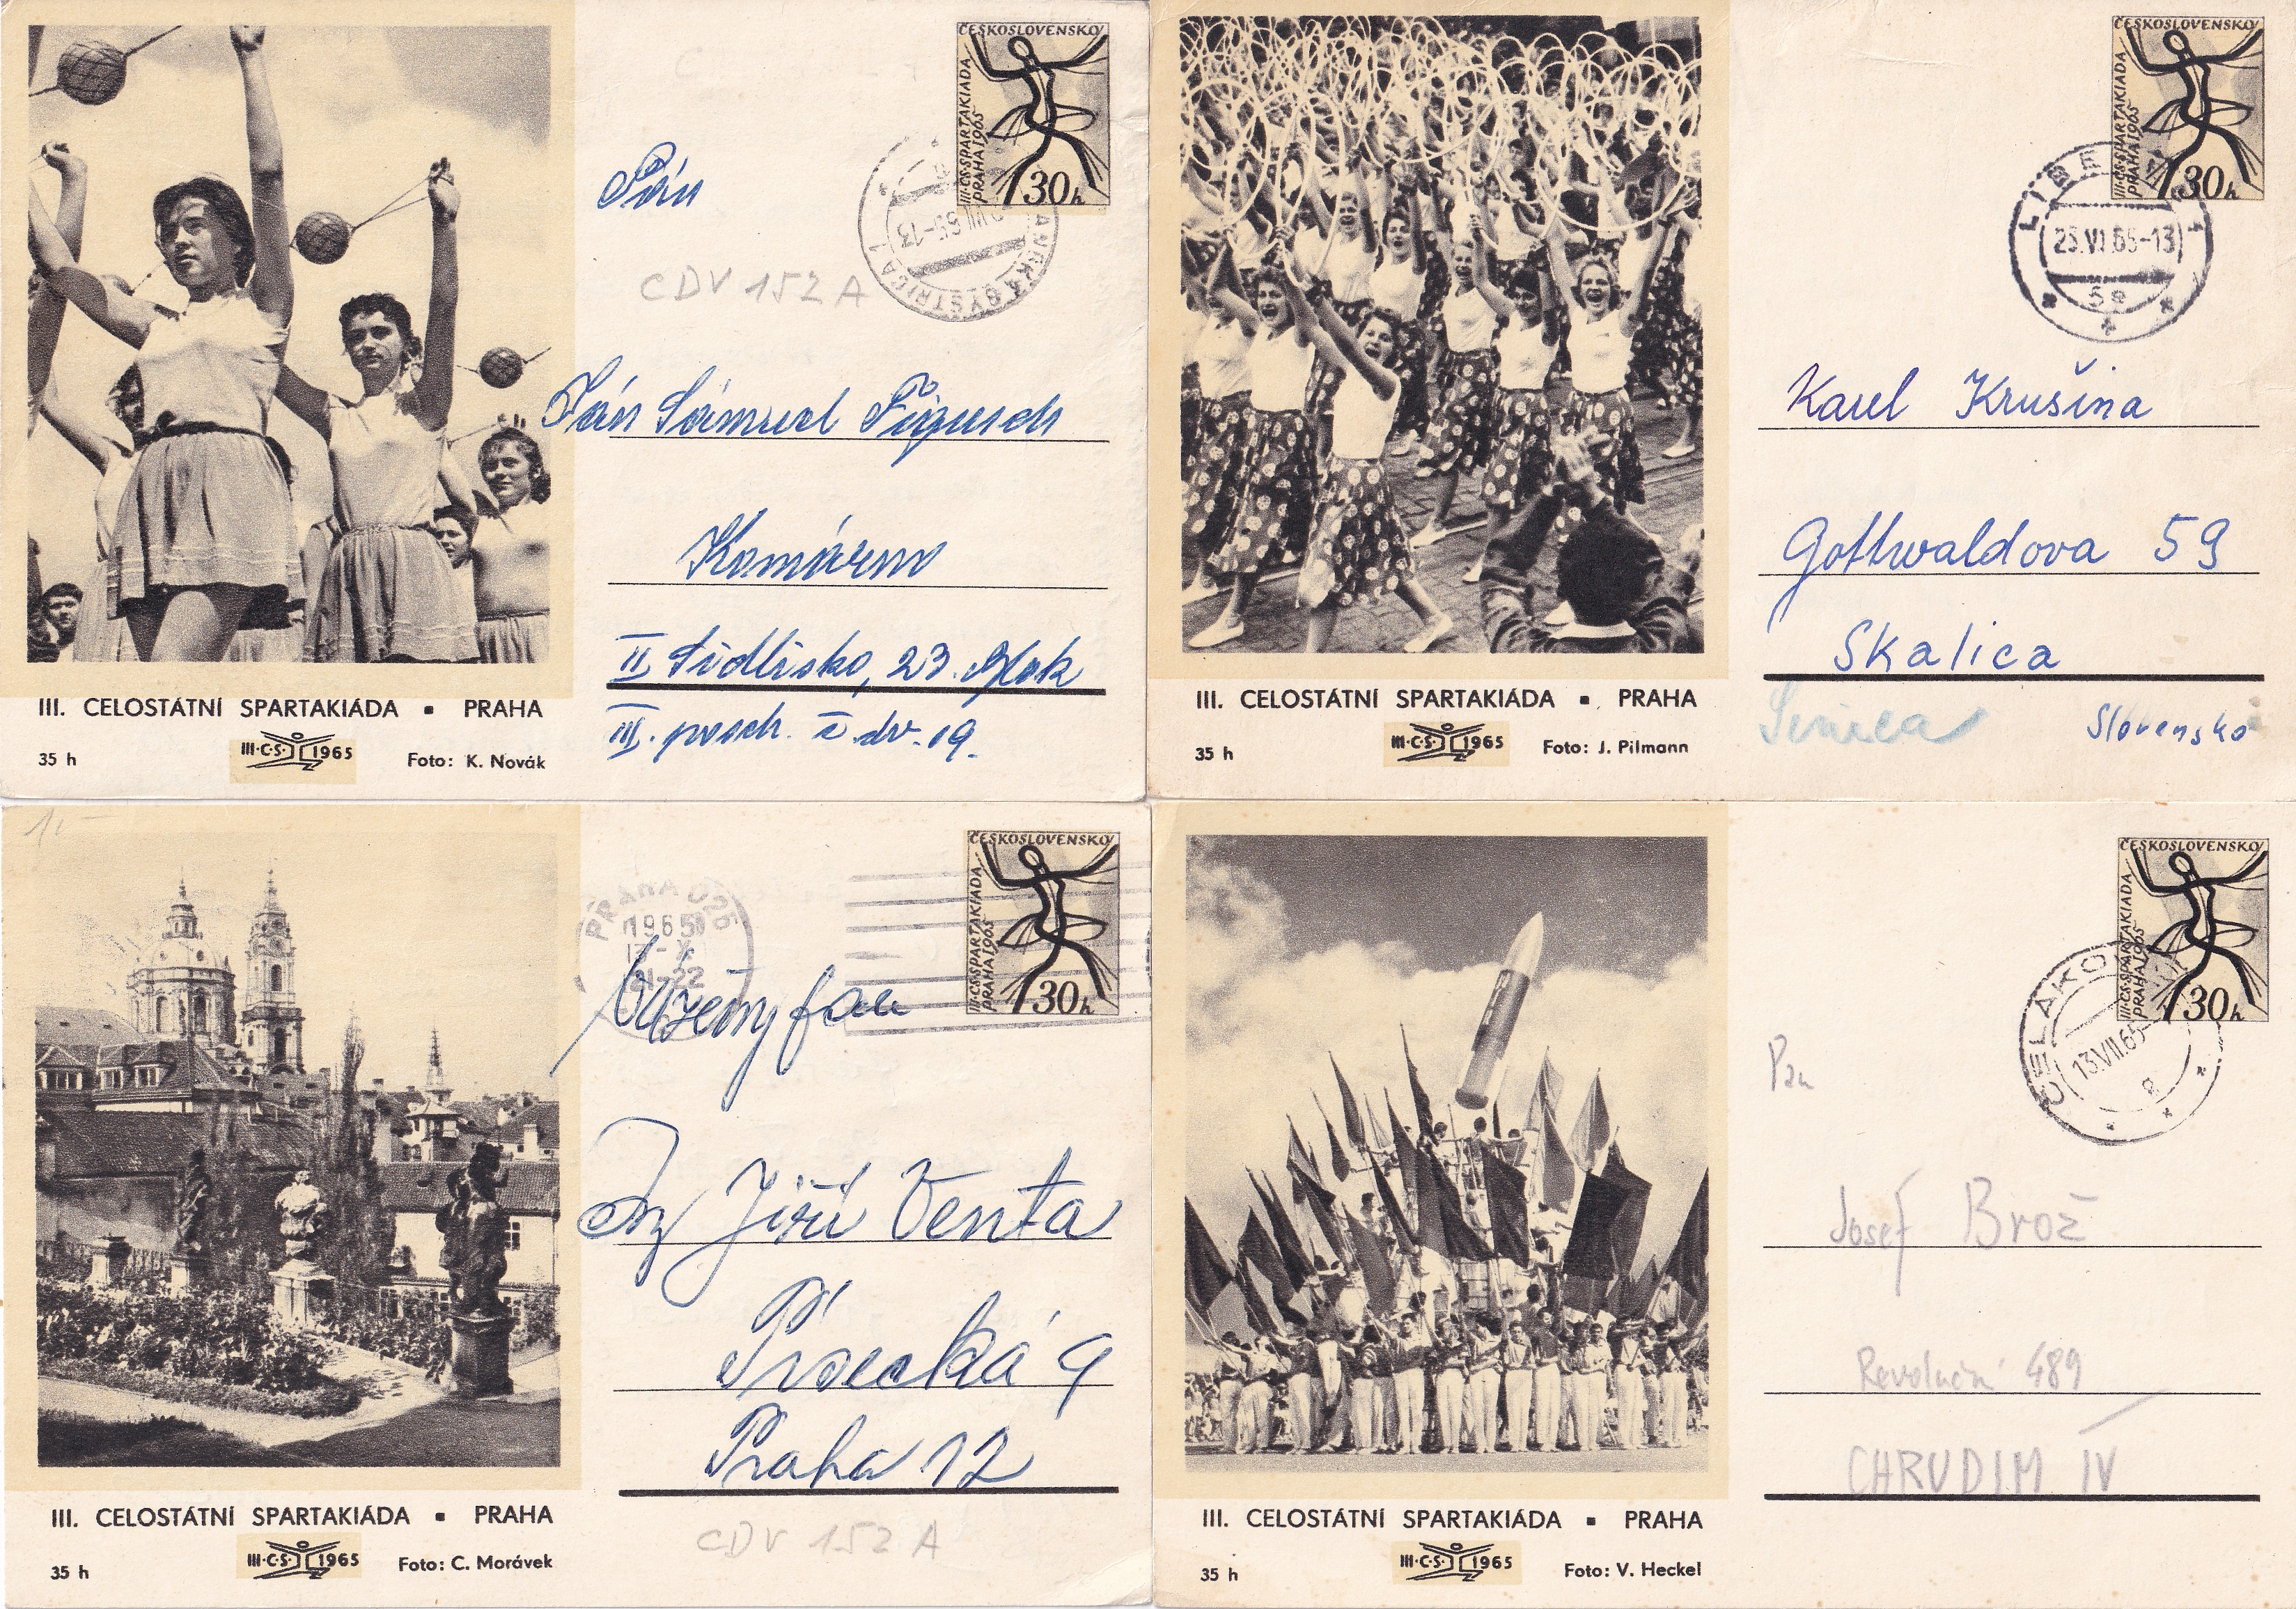 ČESKOSLOVENSKO
III.CS.SPARTAKIADA
PRAHA 1965
30h
BYSTRICA 1
Pán
CDV 152 A
Pán Sámuel
Komárno
II Sídlisko, 23. blok
III. posch. č. dv. 19.
III. CELOSTÁTNÍ SPARTAKIÁDA ▪ PRAHA
III·C·S· 1965
35 h
Foto: K. Novák
ČESKOSLOVENSKO
III.CS.SPARTAKIADA
PRAHA 1965
30h
25.VI.65-13
5a
Karel Krušina
Gottwaldova 59
Skalica
Senica
Slovensko
III. CELOSTÁTNÍ SPARTAKIÁDA ▪ PRAHA
III·C·S· 1965
35 h
Foto: J. Pilmann
1,-
ČESKOSLOVENSKO
III.CS.SPARTAKIADA
PRAHA 1965
30h
PRAHA 025
1965
21-22
Vážený pan
Ing Jiří Venta
Písecká 9
Praha 12
CDV 152 A
III. CELOSTÁTNÍ SPARTAKIÁDA ▪ PRAHA
III·C·S· 1965
35 h
Foto: C. Morávek
ČESKOSLOVENSKO
III.CS.SPARTAKIADA
PRAHA 1965
30h
13.VII.65
Pan
Josef Brož
Revoluční 489
CHRUDIM IV
III. CELOSTÁTNÍ SPARTAKIÁDA ▪ PRAHA
III·C·S· 1965
35 h
Foto: V. Heckel